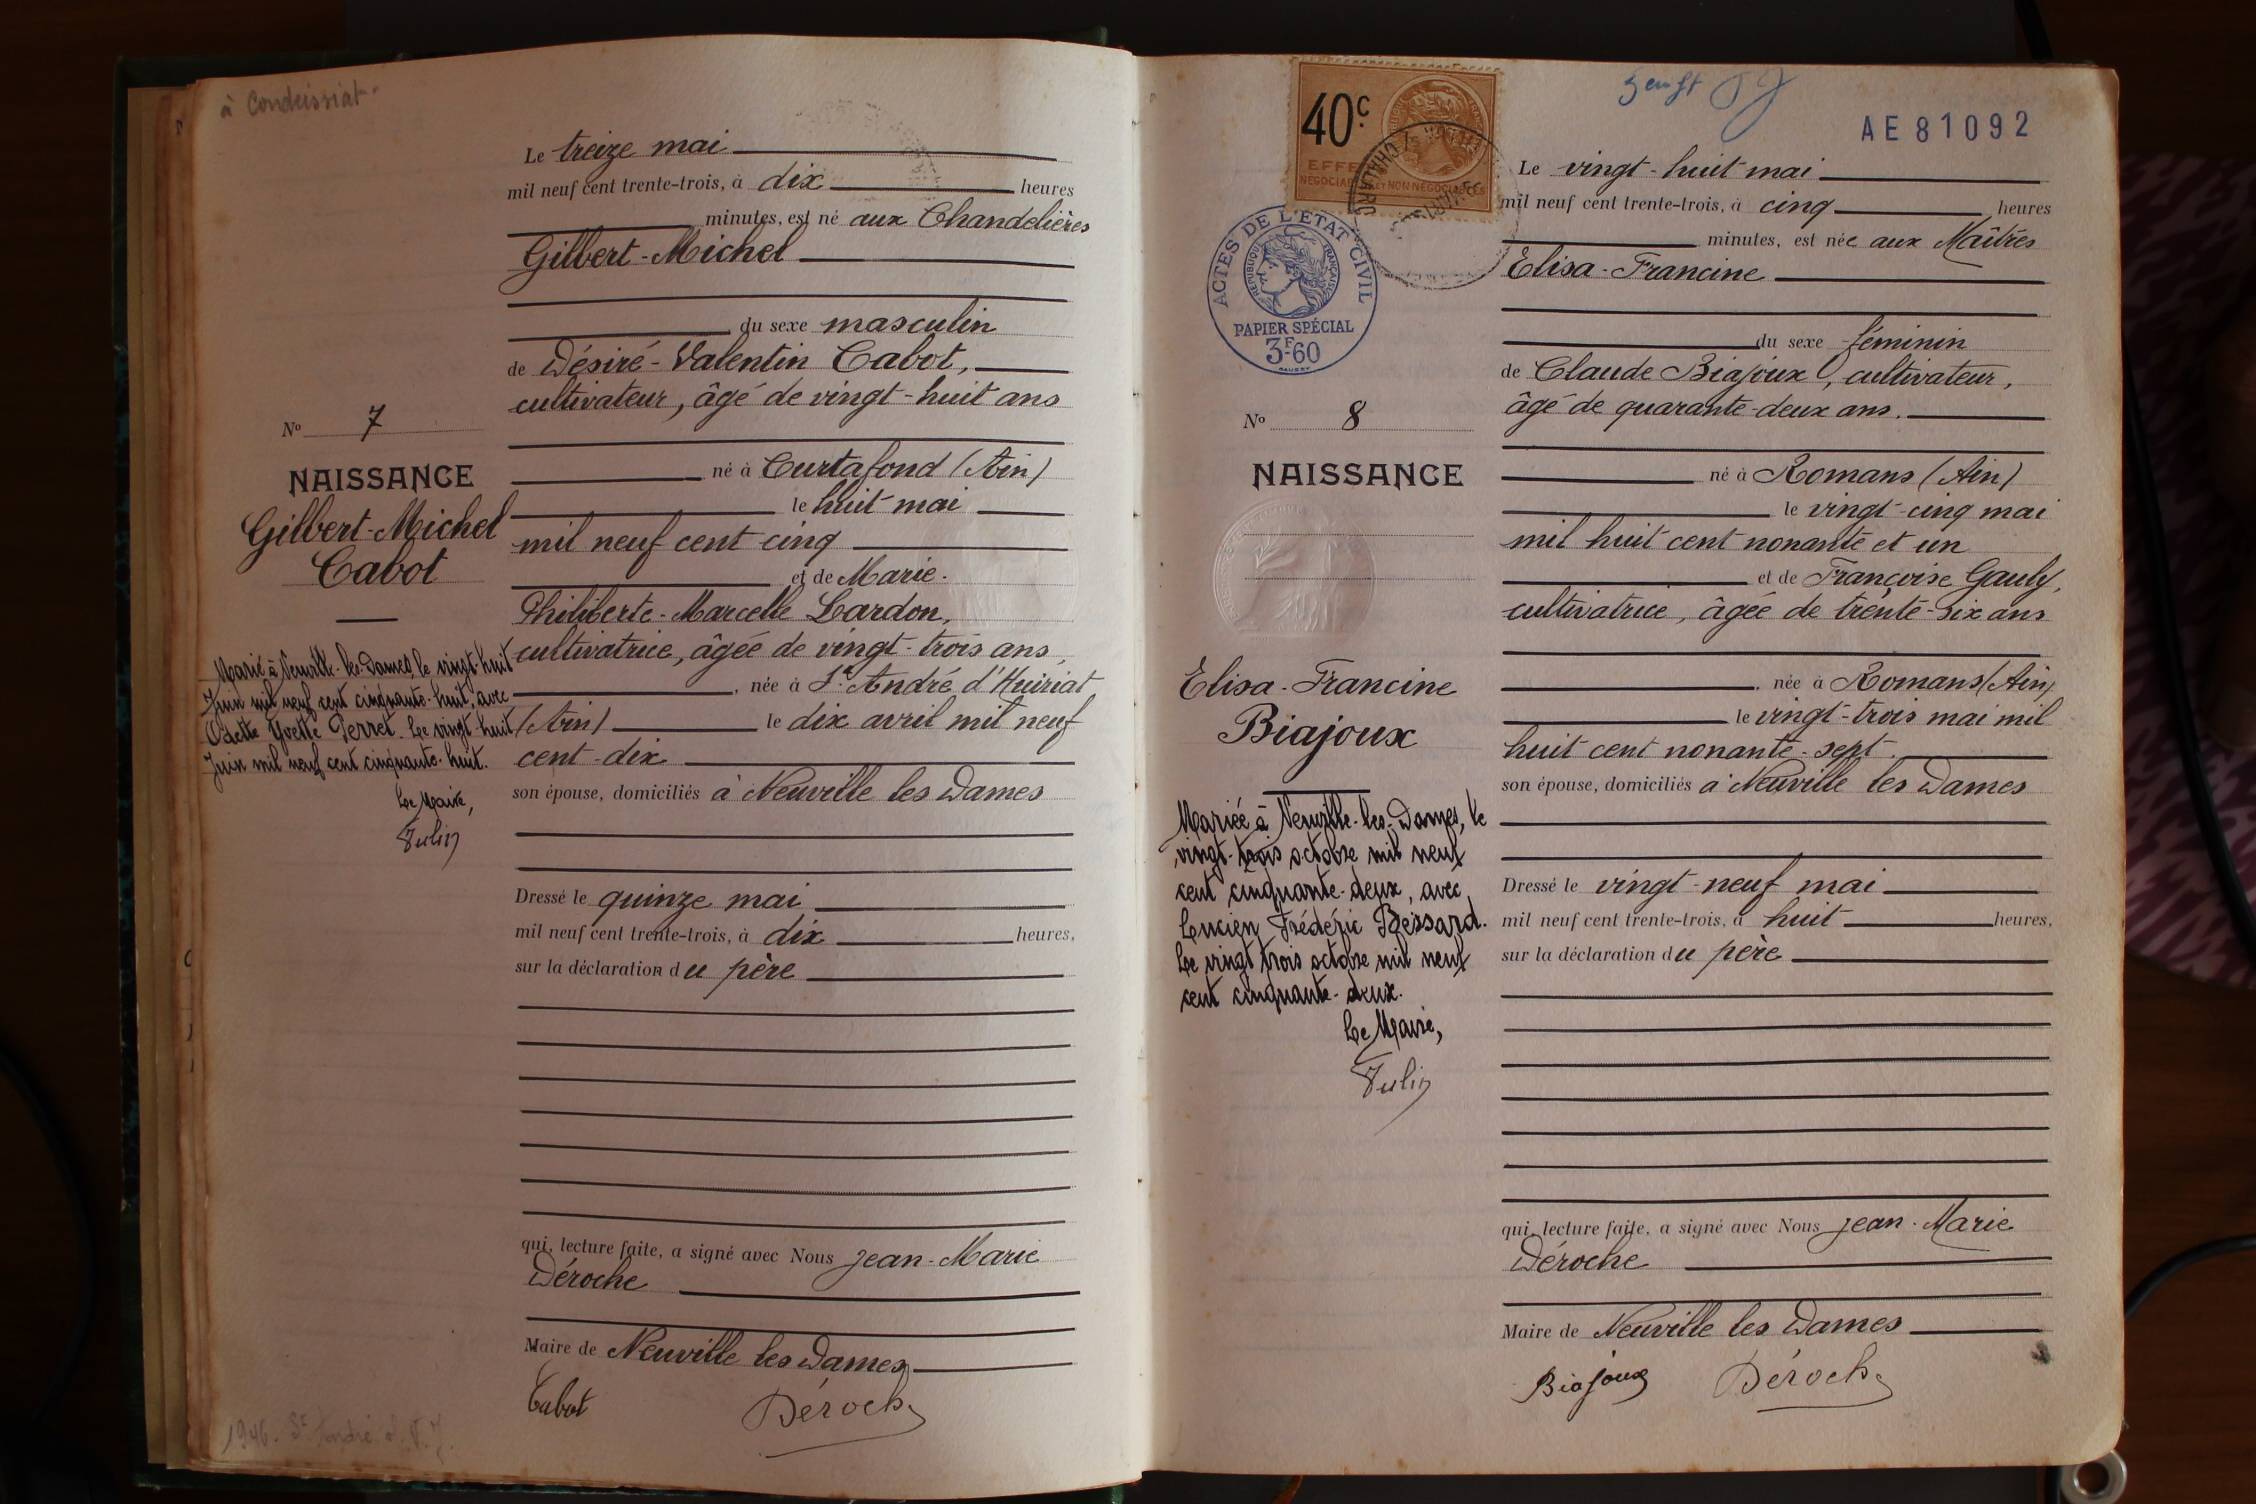 à Condeissiat
Le treize mai
mil neuf cent trente-trois, à dix heures
minutes, est né aux Chandelières
Gilbert-Michel
du sexe masculin
de Désiré-Valentin Cabot,
cultivateur, âgé de vingt-huit ans
né à Curtafond (Ain)
le huit mai
mil neuf cent cinq
et de Marie-
Philiberte-Marcelle Lardon,
cultivatrice, âgée de vingt-trois ans,
, née à St André d'Huiriat
(Ain) le dix avril mil neuf
cent-dix
son épouse, domiciliés à Neuville les Dames
Dressé le quinze mai
mil neuf cent trente-trois, à dix heures,
sur la déclaration du père
qui, lecture faite, a signé avec Nous Jean-Marie
Déroche
Maire de Neuville les Dames
Cabot Déroche
No 7
NAISSANCE
Gilbert-Michel
Cabot
Marié à Neuville-les-Dames, le vingt-huit
Juin mil neuf cent cinquante-huit, avec
Odette Yvette Perret. Le vingt-huit
Juin mil neuf cent cinquante-huit.
Le Maire,
1946. St André
40c
EFFETS
ACTES DE L'ETAT CIVIL
REPUBLIQUE FRANÇAISE
PAPIER SPÉCIAL
3F.60
AE81092
Le vingt-huit mai
mil neuf cent trente-trois, à cinq heures
minutes, est née aux Maîtres
Elisa-Francine
du sexe féminin
de Claude Biajoux, cultivateur,
âgé de quarante-deux ans.
né à Romans (Ain)
le vingt-cinq mai
mil huit cent nonante et un
et de Françoise Gauly,
cultivatrice, âgée de trente-six ans
, née à Romans (Ain)
le vingt-trois mai mil
huit cent nonante-sept.
son épouse, domiciliés à Neuville les Dames
Dressé le vingt-neuf mai
mil neuf cent trente-trois, à huit heures,
sur la déclaration du père
qui, lecture faite, a signé avec Nous Jean-Marie
Déroche
Maire de Neuville les Dames
Biajoux Déroche
No 8
NAISSANCE
Elisa-Francine
Biajoux
Mariée à Neuville-les-Dames, le
vingt-trois octobre mil neuf
cent cinquante-deux, avec
Lucien Frédéric Bessard.
Le vingt trois octobre mil neuf
cent cinquante-deux.
Le Maire,